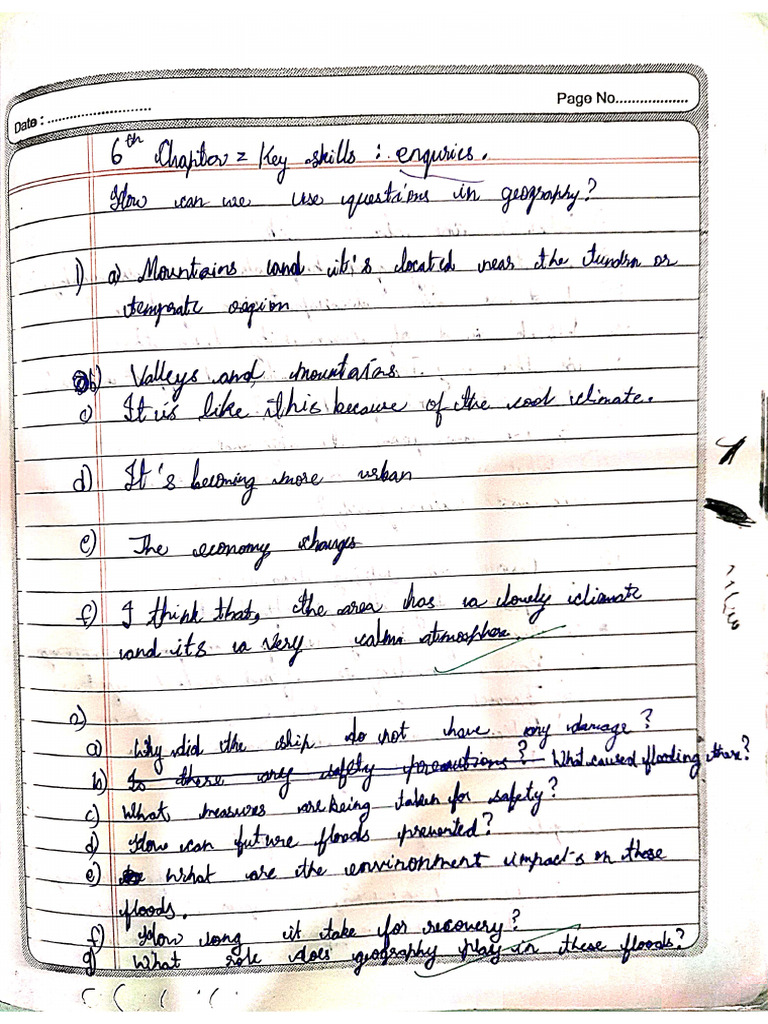 Date : ..........................
Page No..................
6th Chapter = Key skills : enquries.
How can we use questions in geography?
1) a) Mountains and it's located near the tundra or
temprate region
b) Valleys and mountains.
c) It is like this because of the cool climate.
d) It's becoming more urban
e) The economy changes
f) I think that, the area has a lovely climate
and its a very calm atmosphere.
2)
a) Why did the ship do not have any damage?
b) Is there any safety precautions? What caused flooding there?
c) What measures are being taken for safety?
d) How can future floods prevented?
e) What are the environment impact's on these
floods.
f) How long it take for recovery?
g) What role does geography play in these floods?